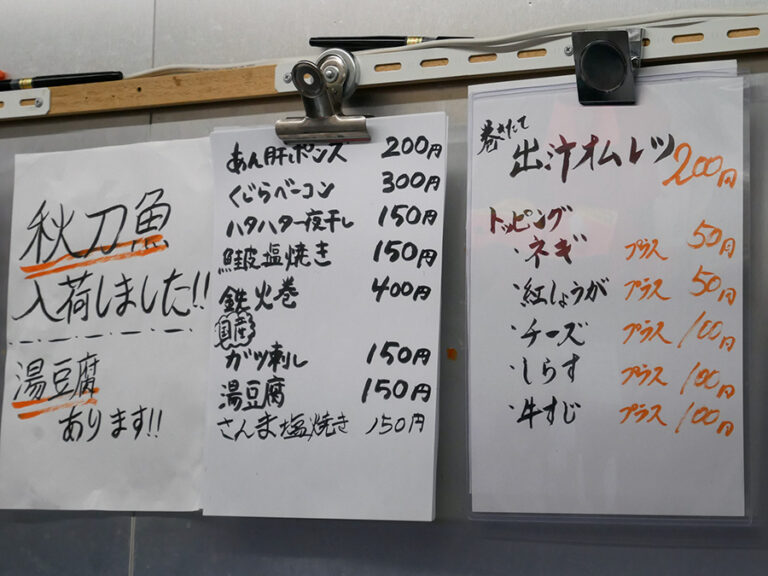 秋刀魚
入荷しました!!
湯豆腐
あります!!
あん肝ポンス 200円
くじらベーコン 300円
ハタハタ一夜干し 150円
鮭皮塩焼き 150円
鉄火巻 400円
国産
ガツ刺し 150円
湯豆腐 150円
さんま塩焼き 150円
巻きたて
出汁オムレツ 200円
トッピング
・ネギ プラス 50円
・紅しょうが プラス 50円
・チーズ プラス 100円
・しらす プラス 100円
・牛すじ プラス 100円